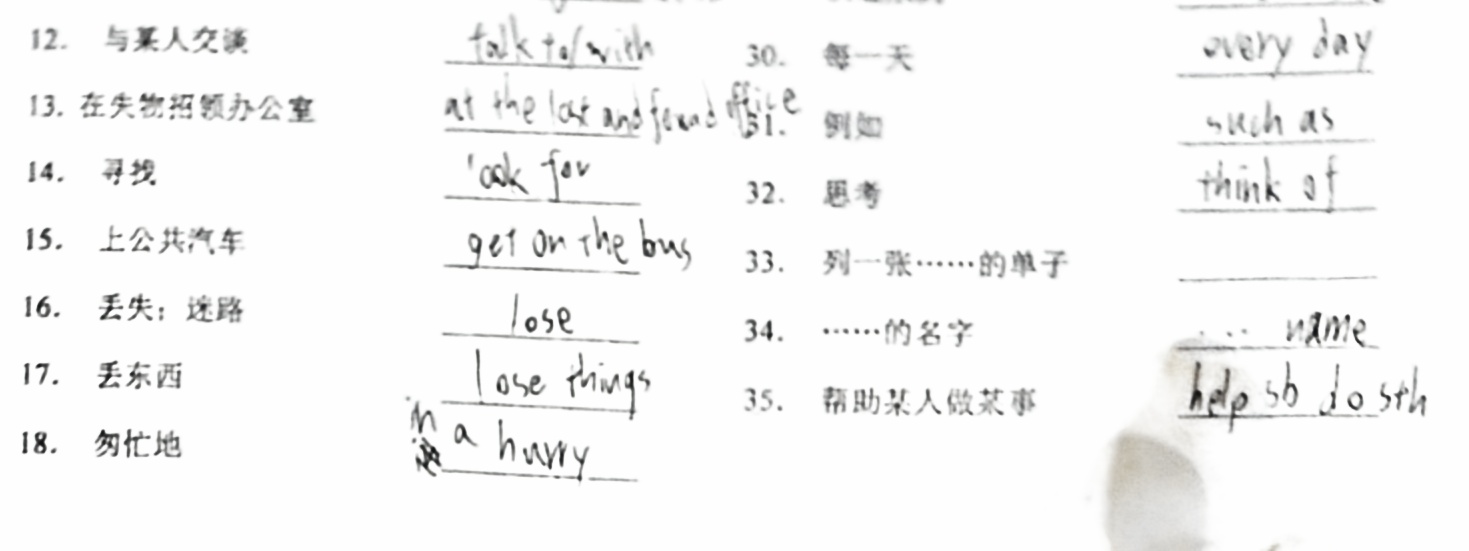 12. 与某人交谈 talk to/with
13. 在失物招领办公室 at the lost and found office
14. 寻找 look for
15. 上公共汽车 get on the bus
16. 丢失；迷路 lose
17. 丢东西 lose things
18. 匆忙地 in a hurry
30. 每一天 every day
31. 例如 such as
32. 思考 think of
33. 列一张……的单子
34. ……的名字 .... name
35. 帮助某人做某事 help sb do sth